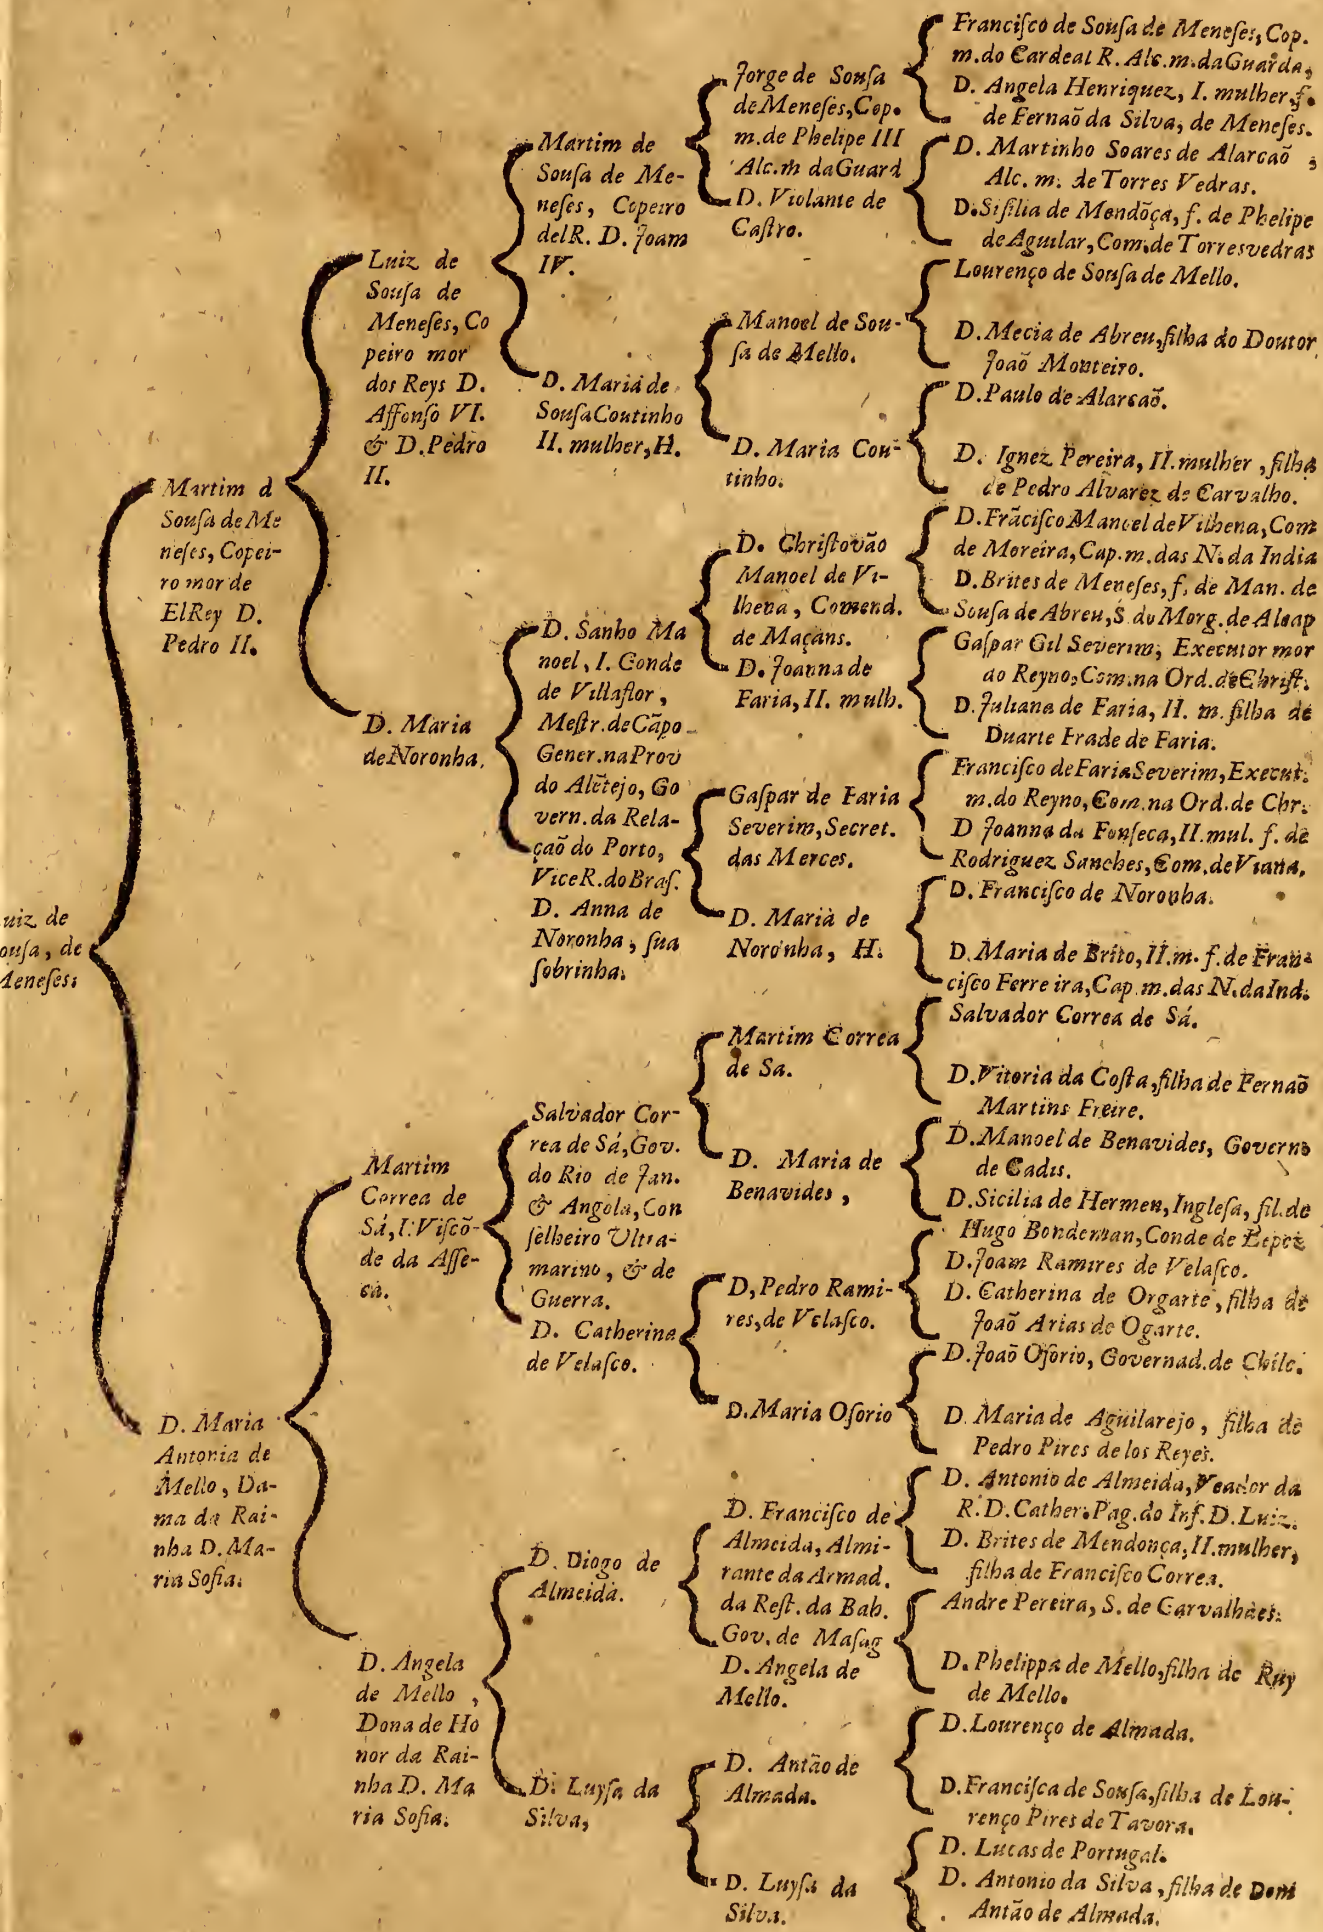 uiz de
ouſa, de
Meneſes.
Martim d
Souſa de Me
neſes, Copei-
ro mor de
ElRey D.
Pedro II.
D. Maria
Antonia de
Mello, Da-
ma da Rai-
nha D. Ma-
ria Sofia.
Luiz de
Souſa de
Meneſes, Co
peiro mor
dos Reys D.
Affonſo VI.
& D. Pedro
II.
D. Maria
de Noronha.
Martim
Correa de
Sá, I. Viſcõ-
de da Aſſe-
ca.
D. Angela
de Mello,
Dona de Ho
nor da Rai-
nha D. Ma
ria Sofia.
Martim de
Souſa de Me-
neſes, Copeiro
delR. D. Joam
IV.
D. Maria de
Souſa Coutinho
II. mulher, H.
D. Sanho Ma
noel, I. Conde
de Villaflor,
Meſtr. de Cãpo
Gener. na Prov
do Alẽtejo, Go
vern. da Rela-
çaõ do Porto,
ViceR. do Braſ.
D. Anna de
Noronha, ſua
ſobrinha.
Salvador Cor-
rea de Sá, Gov.
do Rio de Jan.
& Angola, Con
ſelheiro Ultra-
marino, & de
Guerra.
D. Catherina
de Velaſco.
D. Diogo de
Almeida.
D. Luyſa da
Silva,
Jorge de Souſa
de Meneſes, Cop.
m. de Phelipe III
Alc. m da Guard
D. Violante de
Caſtro.
Manoel de Sou-
ſa de Mello.
D. Maria Cou-
tinho.
D. Chriſtovão
Manoel de Vi-
lhena, Comend.
de Maçans.
D. Joanna de
Faria, II. mulh.
Gaſpar de Faria
Severim, Secret.
das Merces.
D. Maria de
Noronha, H.
Martim Correa
de Sa.
D. Maria de
Benavides,
D, Pedro Rami-
res, de Velaſco.
D. Maria Oſorio
D. Franciſco de
Almeida, Almi-
rante da Armad.
da Reſt. da Bah.
Gov. de Maſag
D. Angela de
Mello.
D. Antão de
Almada.
D. Luyſa da
Silva.
Franciſco de Souſa de Meneſes, Cop.
m. do Cardeal R. Alc. m. da Guarda,
D. Angela Henriquez, I. mulher, f.
de Fernaõ da Silva, de Meneſes.
D. Martinho Soares de Alarcaõ,
Alc. m. de Torres Vedras.
D. Siſilia de Mendõça, f. de Phelipe
de Aguilar, Com. de Torresvedras
Lourenço de Souſa de Mello.
D. Mecia de Abreu, filha do Doutor
Joaõ Monteiro.
D. Paulo de Alarcaõ.
D. Ignez Pereira, II. mulher, filha
de Pedro Alvarez de Carvalho.
D. Frãciſco Manoel de Vilhena, Com
de Moreira, Cap. m. das N. da India
D. Brites de Meneſes, f. de Man. de
Souſa de Abreu, S. do Morg. de Alcap
Gaſpar Gil Severim, Executor mor
do Reyno, Com. na Ord. de Chriſt.
D. Juliana de Faria, II. m. filha de
Duarte Frade de Faria.
Franciſco de Faria Severim, Execut.
m. do Reyno, Com. na Ord. de Chr.
D Joanna da Fonſeca, II. mul. f. de
Rodriguez Sanches, Com. de Viana.
D. Franciſco de Noronha.
D. Maria de Brito, II. m. f. de Fran-
ciſco Ferreira, Cap. m. das N. da Ind.
Salvador Correa de Sá.
D. Vitoria da Coſta, filha de Fernaõ
Martins Freire.
D. Manoel de Benavides, Governo
de Cadis.
D. Sicilia de Hermen, Ingleſa, fil. de
Hugo Bondeman, Conde de
D. Joam Ramires de Velaſco.
D. Catherina de Orgarte, filha de
Joaõ Arias de Ogarte.
D. Joaõ Oſorio, Governad. de Chile.
D. Maria de Aguilarejo, filha de
Pedro Pires de los Reyes.
D. Antonio de Almeida, Veador da
R. D. Cather. Pag. do Inf. D. Luiz.
D. Brites de Mendonça, II. mulher,
filha de Franciſco Correa.
Andre Pereira, S. de Carvalhaes.
D. Phelippa de Mello, filha de Ruy
de Mello.
D. Lourenço de Almada.
D. Franciſca de Souſa, filha de Lou-
renço Pires de Tavora.
D. Lucas de Portugal.
D. Antonio da Silva, filha de Dom
Antão de Almada.